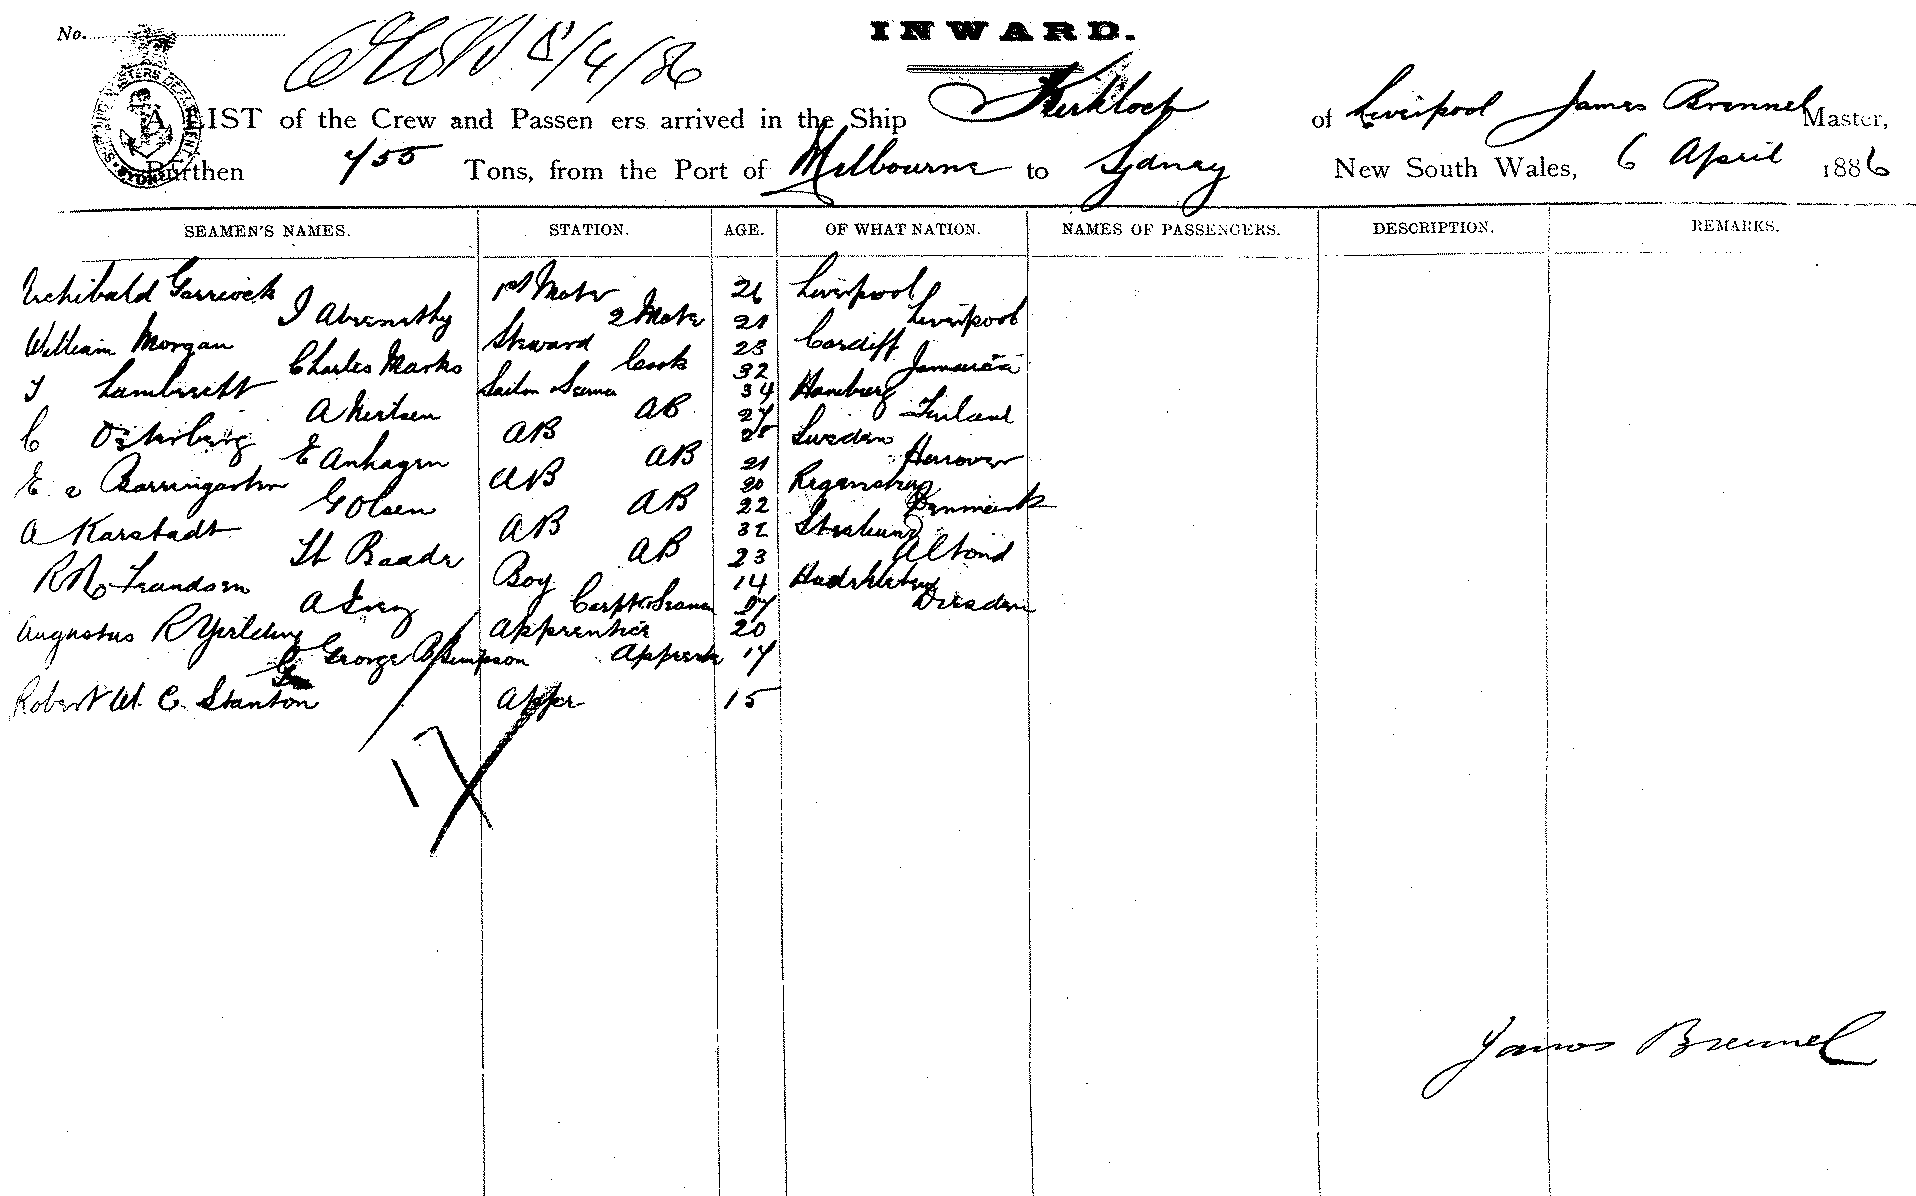 No.
INWARD.
5/4/86
A LIST of the Crew and Passen ers arrived in the Ship Kerkloch of Liverpool James Brennel Master,
Burthen 455 Tons, from the Port of Melbourne to Sydney New South Wales, 6 April 1886
SEAMEN'S NAMES. STATION. AGE. OF WHAT NATION. NAMES OF PASSENGERS. DESCRIPTION. REMARKS.
Archibald Garriock 1st Mate 26 Liverpool
J Abernethy 2 Mate 21 Liverpool
William Morgan Steward 23 Cardiff
Charles Marks Cook 32 Jamaica
Lambrecht 34 Hamburg
A AB 27 Finland
C Osterberg AB Sweden
E Anhagen AB 21 Hanover
E AB 20
G Olsen AB 22 Denmark
A Karstadt AB 32 Stralsund
H Baade AB 23
Frandsen Boy 14
A Dresden
Augustus R Apprentice 20
George Simpson 17
Robert W. C. Stanton Apper 15
17
James Brennel